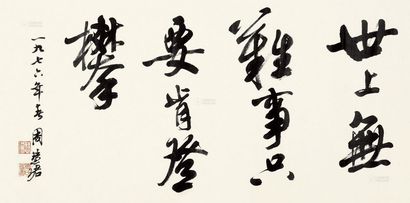 世上無
難事只
要肯登
攀
一九七六年春 周慧珺